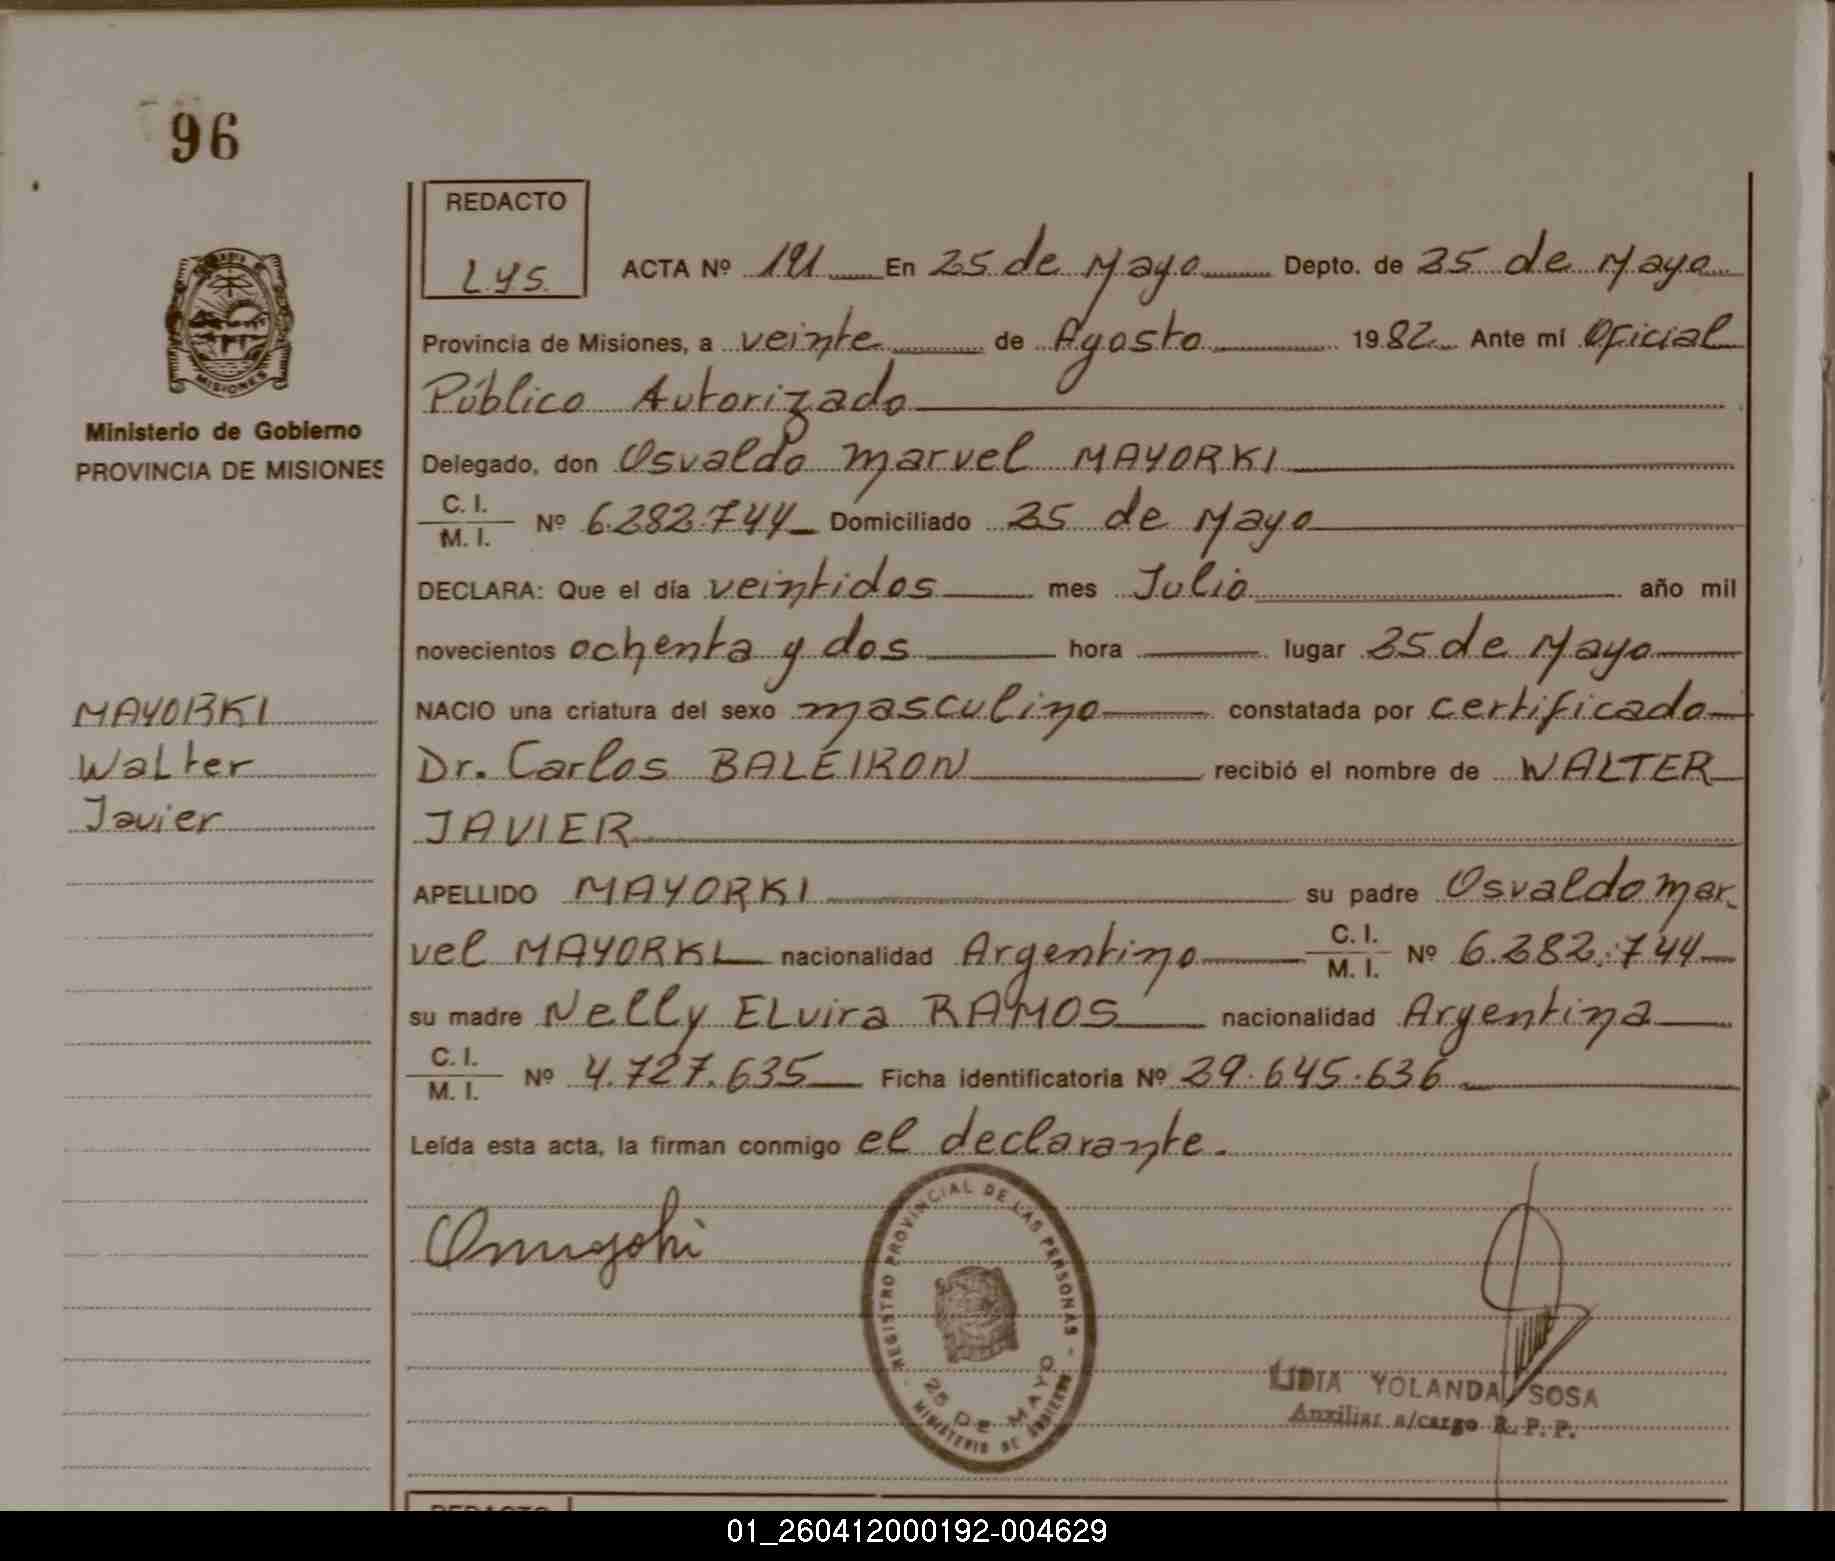 96
REDACTO
L.Y.S.
ACTA Nº 191 En 25 de Mayo Depto. de 25 de Mayo
Provincia de Misiones, a veinte de Agosto 1982 Ante mí Oficial
Público Autorizado
Ministerio de Gobierno
PROVINCIA DE MISIONES
Delegado, don Osvaldo Marvel MAYORKI
C. I.
M. I. Nº 6.282.744 Domiciliado 25 de Mayo
DECLARA: Que el día veintidos mes Julio año mil
novecientos ochenta y dos hora lugar 25 de Mayo
MAYORKI
Walter
Javier
NACIO una criatura del sexo masculino constatada por certificado
Dr. Carlos BALEIRON recibió el nombre de WALTER
JAVIER
APELLIDO MAYORKI su padre Osvaldo Mar
vel MAYORKI nacionalidad Argentino C. I. M. I. Nº 6.282.744
su madre Nelly Elvira RAMOS nacionalidad Argentina
C. I.
M. I. Nº 4.727.635 Ficha identificatoria Nº 29.645.636
Leída esta acta, la firman conmigo el declarante.
REGISTRO PROVINCIAL DE LAS PERSONAS
25 DE MAYO
MINISTERIO DE GOBIERNO
LIDIA YOLANDA SOSA
Auxiliar a/cargo R. P. P.
REDACTO
01_260412000192-004629